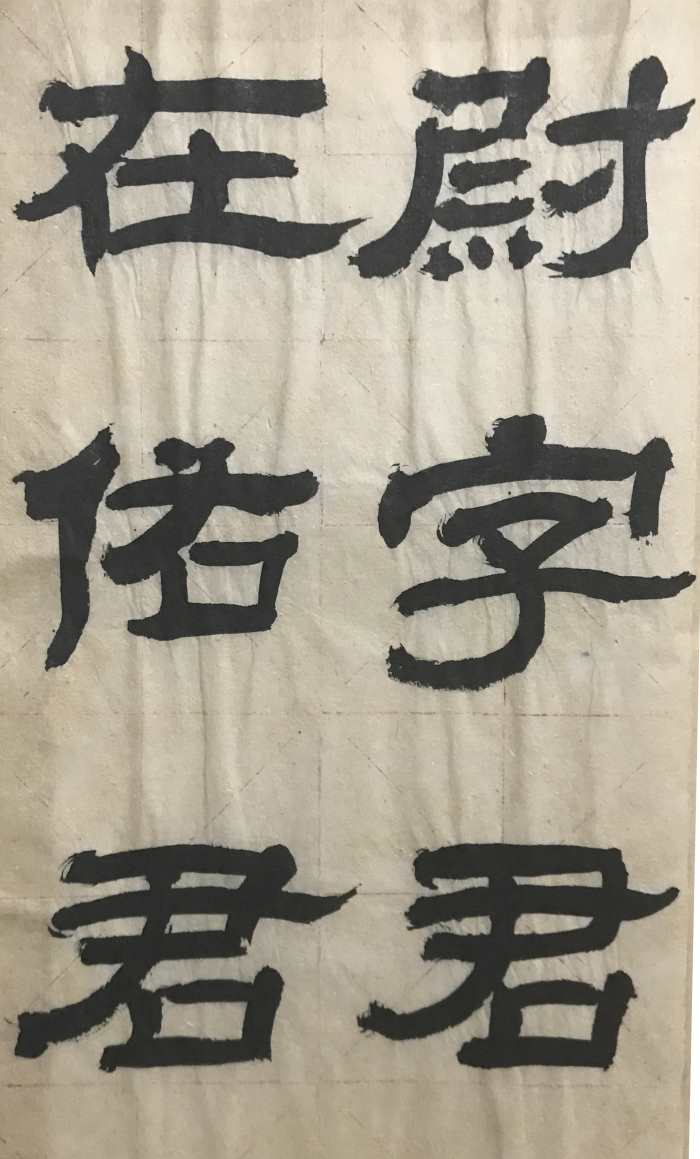 尉字君
在佑君